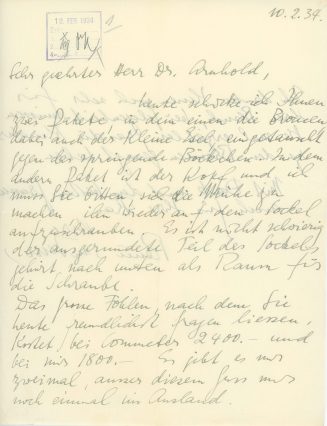 10.2.34.
12 FEB 1934
Sehr geehrter Herr Dr. Arnhold,
heute schicke ich Ihnen
zwei Pakete in dem einen die Bronzen
dabei auch der Kleine Esel eingetauscht
gegen das springende Böckchen. In dem
andern Paket ist der Kopf und ich
muss Sie bitten sich die Mühe zu
machen ihn wieder auf den Sockel
aufzuschrauben. Es ist nicht schwierig
der ausgerundete Teil des Sockels
gehört nach unten als Raum für
die Schraube.
Das grosse Fohlen, nach dem Sie
heute freundlichst fragen liessen,
kostet bei Commeter 2400.- und
bei mir 1800.- Es gibt es nur
zweimal, ausser diesem Guss nur
noch einmal im Ausland.